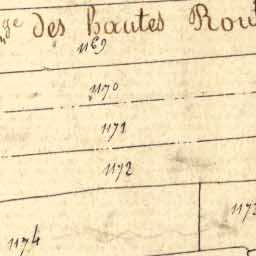 ge des hautes Rou
1169
1170
1171
1172
1173
1174